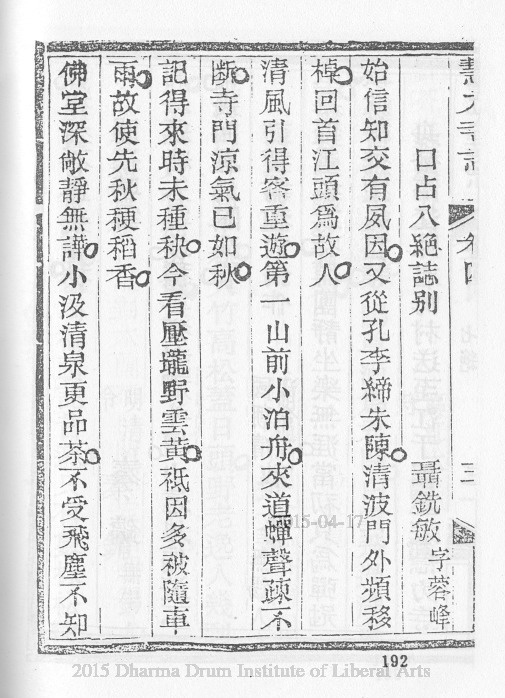 口占八絕誌别 聶銑敏字蓉峰
始信知交有夙因又從孔李締朱陳清波門外頻移
棹回首江頭爲故人
清風引得客重遊第一山前小泊舟夾道蟬聲疎不
斷寺門涼氣已如秋
記得來時未種秧今看壓壠野雲黃祗因多被隨車
雨故使先秋稉稻香
佛堂深敞靜無譁小汲清泉更品茶不受飛塵不知
192
2015-04-17
2015 Dharma Drum Institute of Liberal Arts